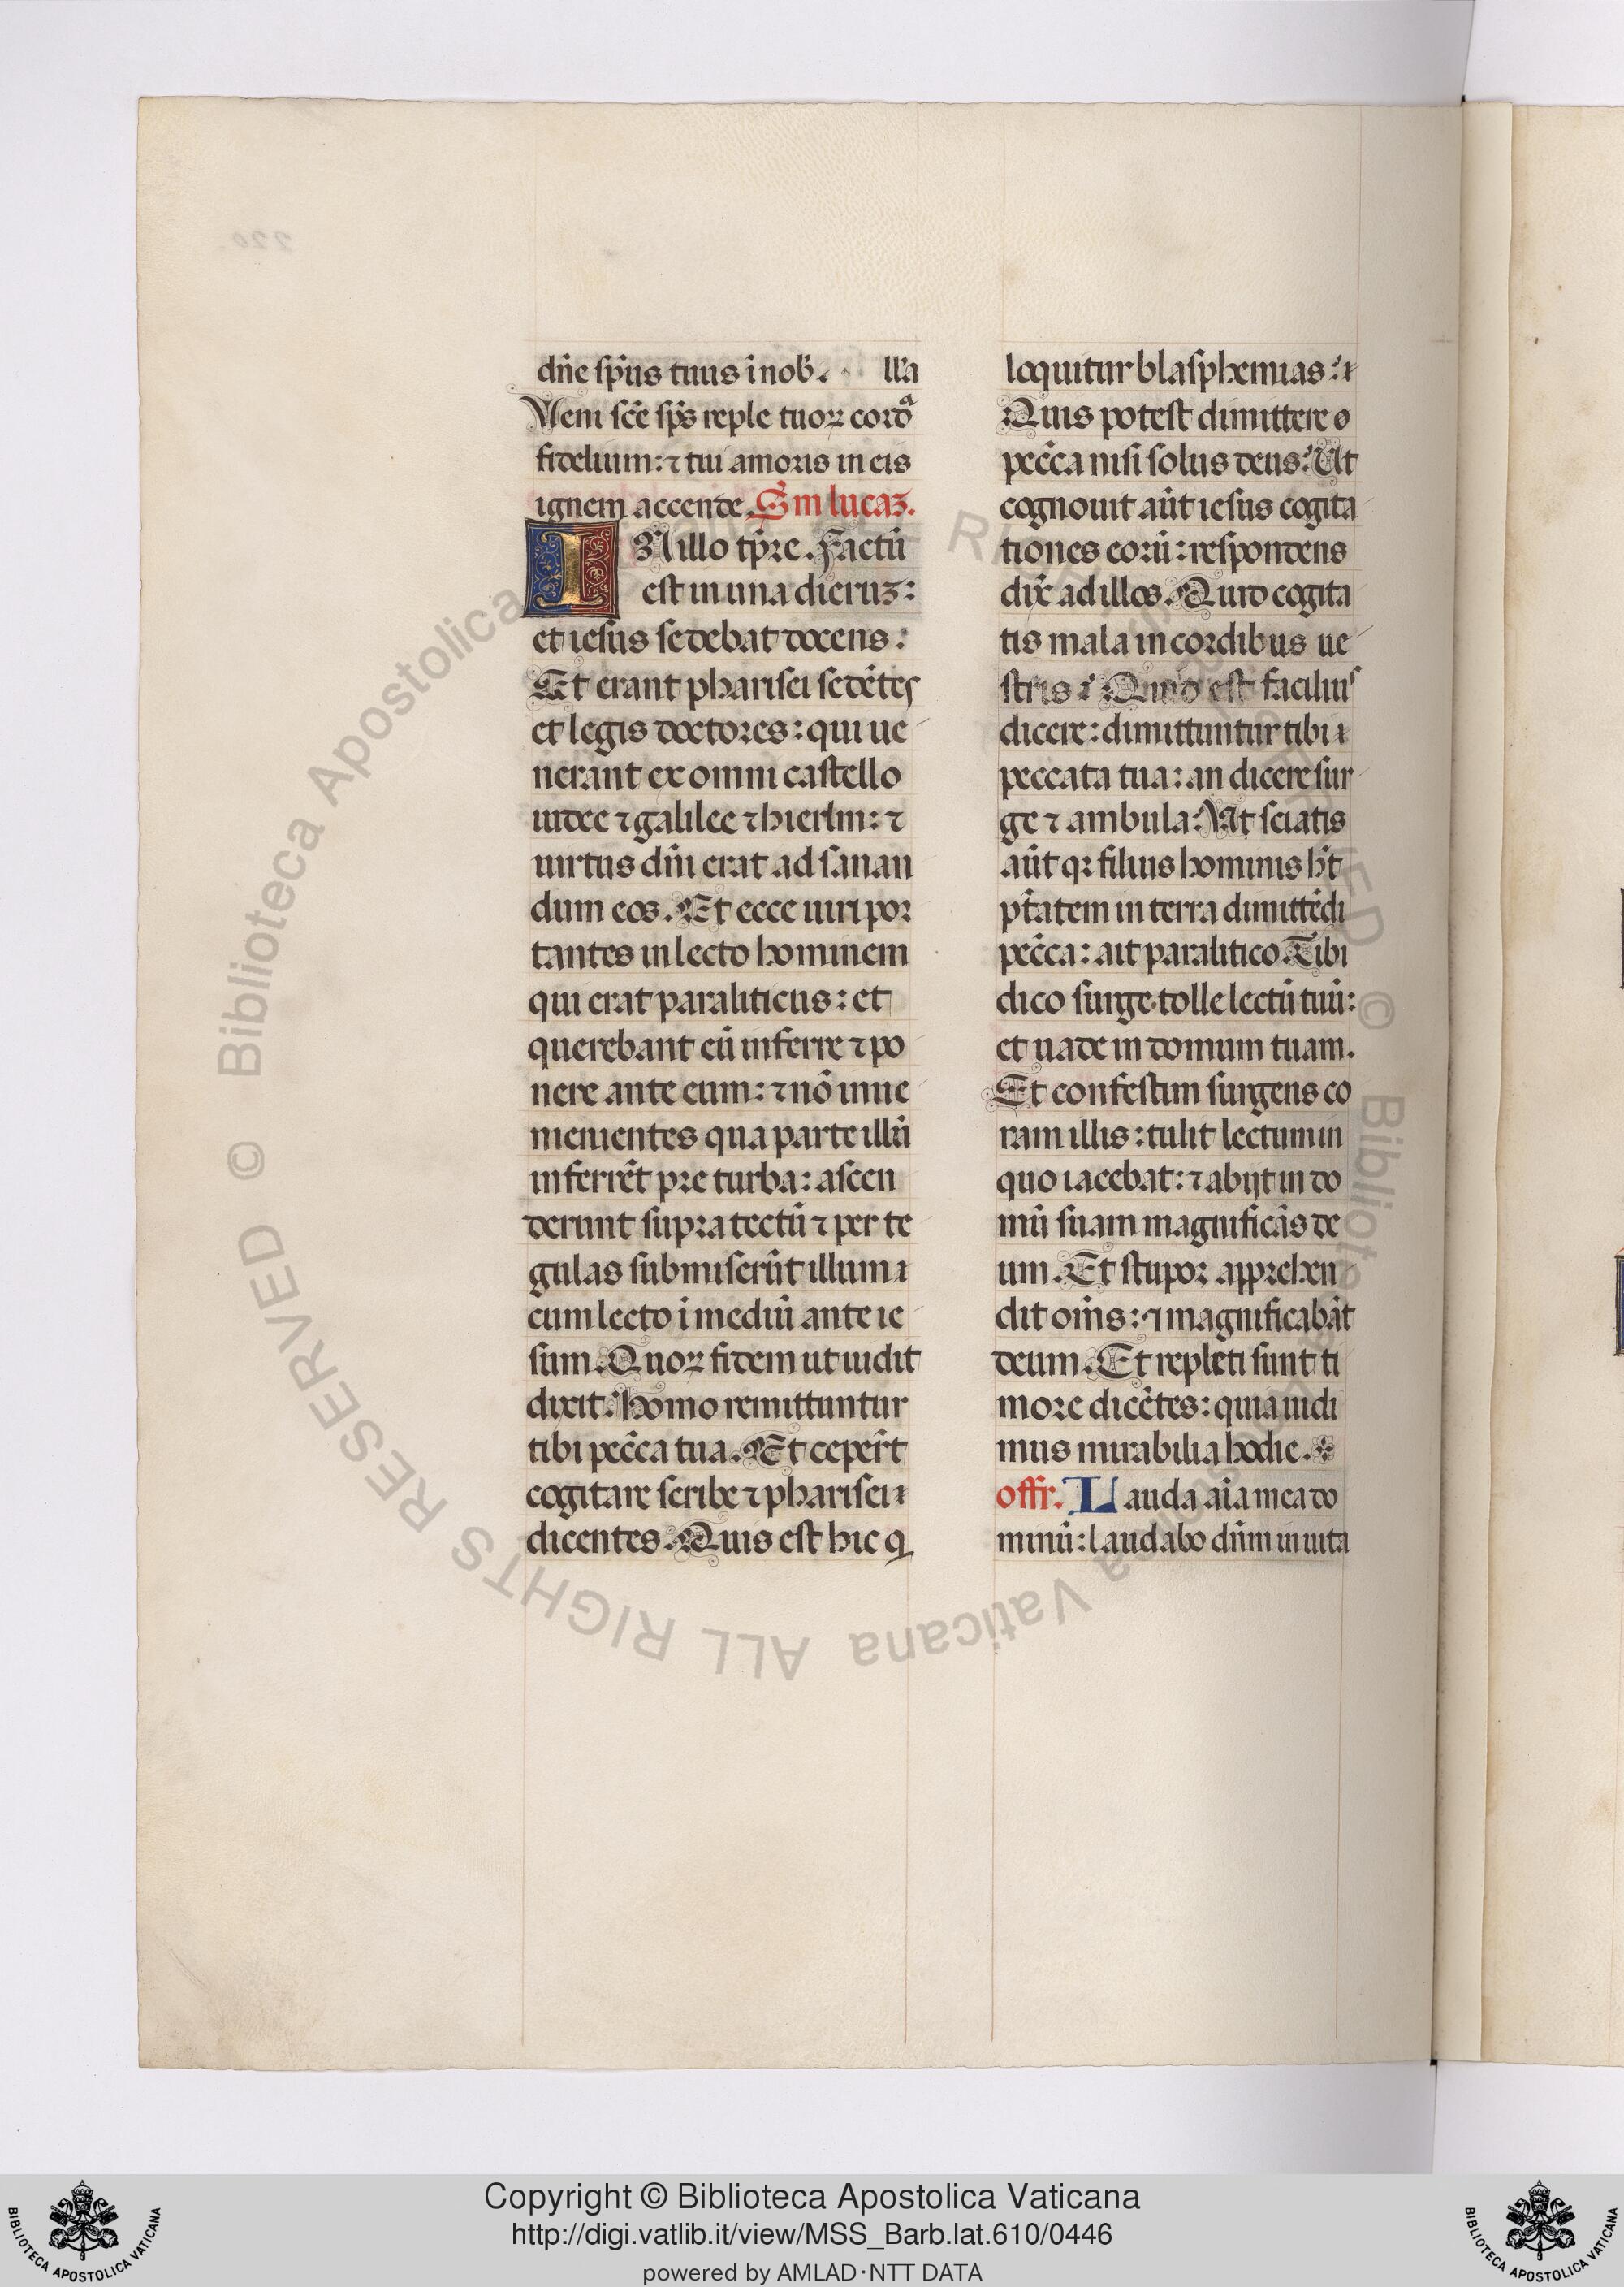 dñe sp̃us tuus ĩ nob̃. all'a
Veni sc̃e sp̃s reple tuoꝝ corda
fidelium: ⁊ tui amoris in eis
ignem accende. S̃m lucaꝫ.
IN illo tp̃re. Factũ
est in una dieruꝫ:
et iesus sedebat docens:
Et erant pharisei sedẽtes
et legis doctores: qui ue
nerant ex omni castello
iudee ⁊ galilee ⁊ hierl̃m: ⁊
uirtus dñi erat ad sanan
dum eos. Et ecce uiri por
tantes in lecto hominem
qui erat paraliticus: et
querebant eũ inferre ⁊ po
nere ante eum: ⁊ nõ inue
nienientes qua parte illũ
inferrẽt pre turba: ascen
derunt supra tectũ ⁊ per te
gulas submiserũt illum
cum lecto ĩ mediũ ante ie
sum. Quoꝝ fidem ut uidit
dixit. Homo remittuntur
tibi pec̃ca tua. Et ceper̃t
cogitare scribe ⁊ pharisei
dicentes. Quis est hic q
loquitur blasphemias:
Quis potest dimittere
pec̃ca nisi solus deus: Ut
cognouit aũt iesus cogita
tiones eorũ: respondens
dix̃ ad illos. Quid cogita
tis mala in cordibus ue
stris: Quid est facilius
dicere: dimittuntur tibi
peccata tua: an dicere sur
ge ⁊ ambula: Vt sciatis
aũt qꝛ filius hominis h̃t
pt̃atem in terra dimittẽdi
pec̃ca: ait paralitico. Tibi
dico surge. tolle lectũ tuũ:
et uade in domum tuam.
Et confestim surgens co
ram illis: tulit lectum in
quo iacebat: ⁊ abijt in do
mũ suam magnificãs de
um. Et stupor apprehen
dit om̃s: ⁊ magnificabãt
deum. Et repleti sunt ti
more dicẽtes: quia uidi
mus mirabilia hodie.
offr. Lauda aĩa mea do
minũ: laudabo dñm in uita
© Biblioteca Apostolica Vaticana ALL RIGHTS RESERVED
Copyright © Biblioteca Apostolica Vaticana
http://digi.vatlib.it/view/MSS_Barb.lat.610/0446
powered by AMLAD·NTT DATA
BIBLIOTECA APOSTOLICA VATICANA
BIBLIOTECA APOSTOLICA VATICANA